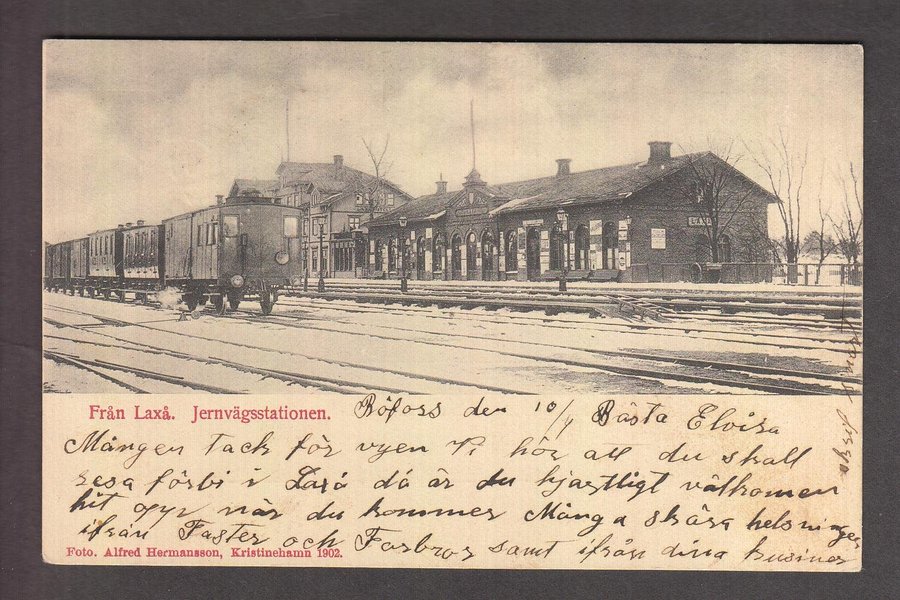 LAXÅ
Från Laxå. Jernvägsstationen.
Röfors den 10/4 Bästa Elvira
Mången tack för vyen Vi hör att du skall
resa förbi i Laxå då är du hjärtligt välkommen
hit opp när du kommer Många kära helsningar
ifrån Faster och Farbror samt ifrån dina kusiner
Foto. Alfred Hermansson, Kristinehamn 1902.